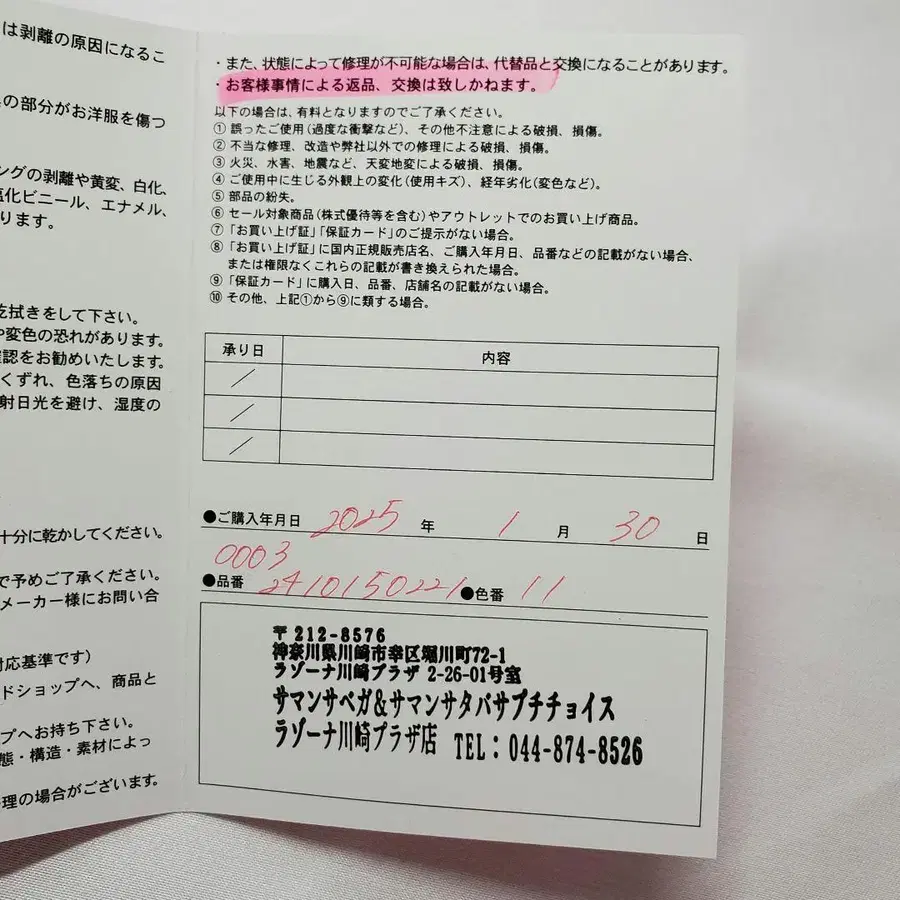 は剥離の原因になるこ
の部分がお洋服を傷つ
ングの剥離や黄変、白化、
塩化ビニール、エナメル、
ります。
乾拭きをして下さい。
や変色の恐れがあります。
確認をお勧めいたします。
くずれ、色落ちの原因
射日光を避け、湿度の
十分に乾かしてください。
で予めご了承ください。
メーカー様にお問い合
対応基準です)
ドショップへ、商品と
プへお持ち下さい。
態・構造・素材によっ
理の場合がございます。
・また、状態によって修理が不可能な場合は、代替品と交換になることがあります。
・お客様事情による返品、交換は致しかねます。
以下の場合は、有料となりますのでご了承ください。
① 誤ったご使用(過度な衝撃など)、その他不注意による破損、損傷。
② 不当な修理、改造や弊社以外での修理による破損、損傷。
③ 火災、水害、地震など、天変地変による破損、損傷。
④ ご使用中に生じる外観上の変化(使用キズ)、経年劣化(変色など)。
⑤ 部品の紛失。
⑥ セール対象商品(株式優待等を含む)やアウトレットでのお買い上げ商品。
⑦ 「お買い上げ証」「保証カード」のご提示がない場合。
⑧ 「お買い上げ証」に国内正規販売店名、ご購入年月日、品番などの記載がない場合、
または権限なくこれらの記載が書き換えられた場合。
⑨ 「保証カード」に購入日、品番、店舗名の記載がない場合。
⑩ その他、上記①から⑨に類する場合。
承り日 内容
/
/
/
●ご購入年月日 2025 年 1 月 30 日
0003
●品番 2410150221 ●色番 11
〒212-8576
神奈川県川崎市幸区堀川町72-1
ラゾーナ川崎プラザ 2-26-01号室
サマンサベガ&サマンサタバサプチチョイス
ラゾーナ川崎プラザ店 TEL:044-874-8526